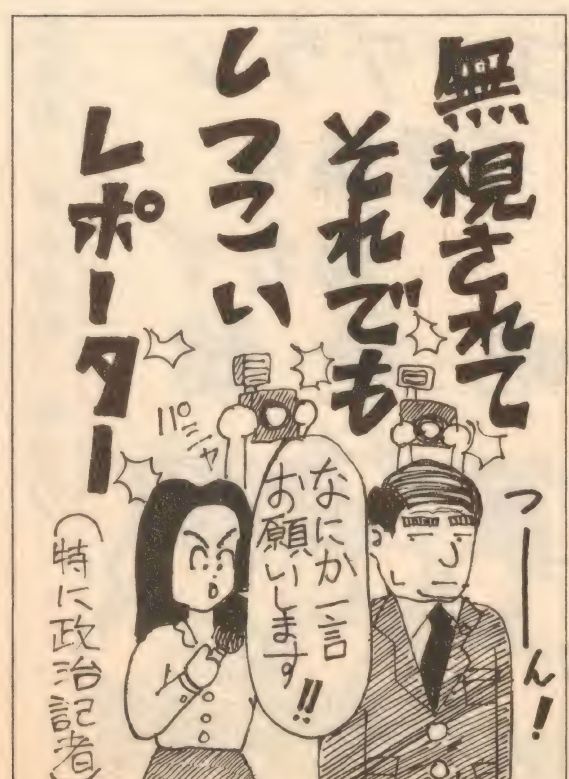 無視されて
それでも
しつこい
レポーター
つーーん!
なにか一言
お願いします!!
パシャ
(特に政治記者)